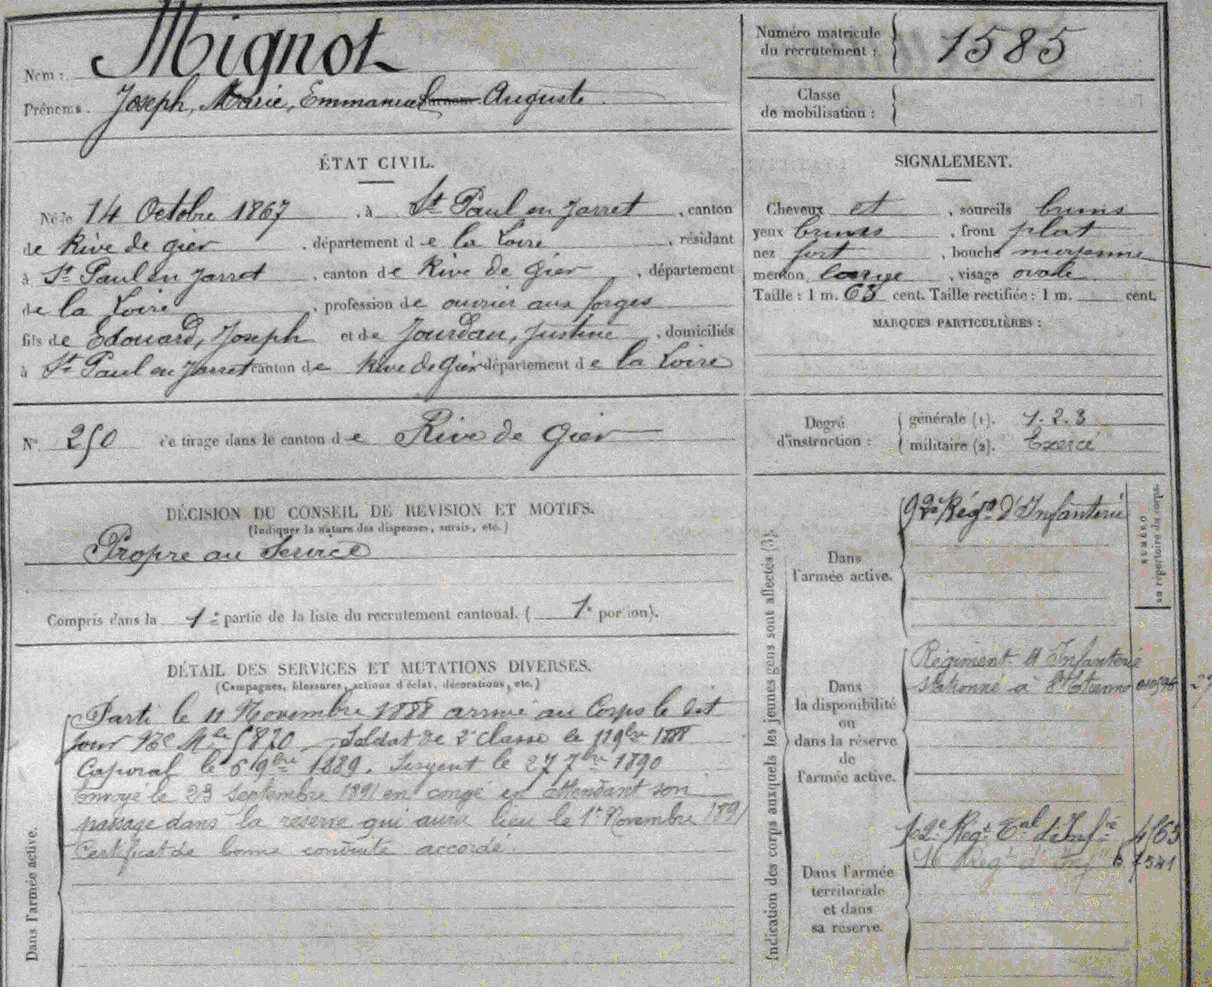 Nom : Mignot
Prénoms. Joseph, Marie, Emmanuel Auguste.
Numéro matricule
du recrutement : 1585
Classe
de mobilisation :
ÉTAT CIVIL.
Né le 14 Octobre 1867, à St Paul en Jarret, canton
de Rive de gier, département de la Loire, résidant
à St Paul en Jarret, canton de Rive de gier, département
de la Loire, profession de ouvrier aux forges
fils de Edouard, Joseph et de Jourdan, Justine, domiciliés
à St Paul en Jarret canton de Rive de Gier département de la Loire
SIGNALEMENT.
Cheveux et, sourcils bruns
yeux bruns, front plat
nez fort, bouche moyenne
menton, large, visage ovale
Taille : 1 m. 63 cent. Taille rectifiée : 1 m. cent.
MARQUES PARTICULIÈRES :
N° 250 de tirage dans le canton de Rive de Gier
Degré
d'instruction :
générale (1). 1.2.3
militaire (2). Exercé
DÉCISION DU CONSEIL DE REVISION ET MOTIFS.
(Indiquer la nature des dispenses, sursis, etc.)
Propre au Service
Compris dans la 1e partie de la liste du recrutement cantonal. ( 1e portion).
DÉTAIL DES SERVICES ET MUTATIONS DIVERSES.
(Campagnes, blessures, actions d'éclat, décorations, etc.)
Dans l'armée active.
Parti le 11 Novembre 1888 arrivé au Corps le dit
jour Ne Mle 5870 Soldat de 2e classe le 11 9bre 1888
Caporal le 6 9bre 1889. Sergent le 27 7bre 1890
Envoyé le 23 Septembre 1891 en congé en attendant son
passage dans la réserve qui aura lieu le 1er Novembre 1891
Certificat de bonne conduite accordé.
Indication des corps auxquels les jeunes gens sont affectés (3).
NUMÉRO
au répertoire du corps.
Dans
l'armée active.
92e Régt d'Infanterie
Dans
la disponibilité
ou
dans la réserve
de
l'armée active.
Régiment d'Infanterie
stationné à St Etienne
Dans l'armée
territoriale
et dans
sa réserve.
Regt Tal d'Infie 4163
16 Régt d'Inf